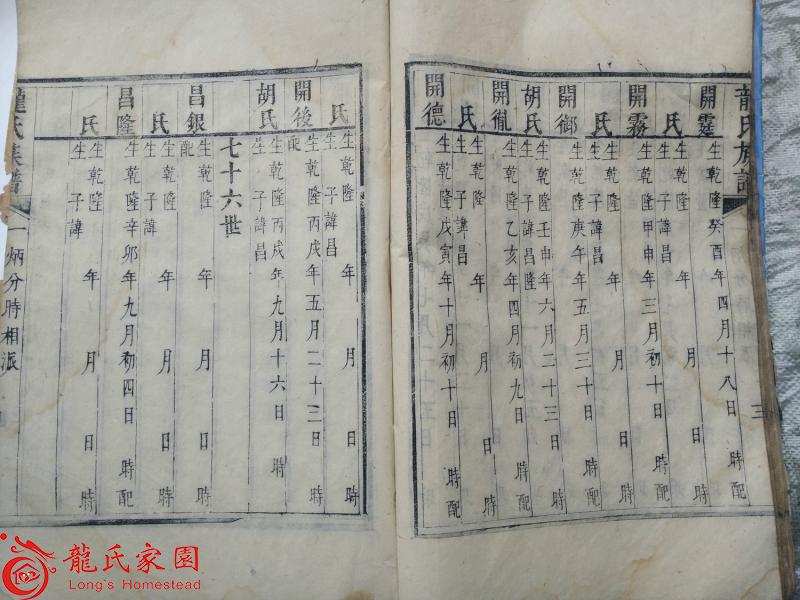 龍氏族譜
開霆
生乾隆癸酉年四月十八日 時配
氏
生 年 月 日 時
子諱昌
開霧
生乾隆甲申年三月初十日 時配
氏
生 年 月 日 時
子諱昌
開鄉
生乾隆庚午年五月三十日 時配
胡氏
生乾隆壬申年六月二十三日 時
子諱昌隆
開胤
生乾隆乙亥年四月初九日 時配
氏
生 年 月 日 時
子諱昌
開德
生乾隆戊寅年十月初十日 時配
氏
生 年 月 日 時
子諱昌
開後
生乾隆丙戌年五月二十二日 時
配
胡氏
生乾隆丙戌年九月十六日 時
子諱昌
七十六世
昌銀
生乾隆 年 月 日 時
配
氏
生乾隆 年 月 日 時
子諱
昌隆
生乾隆辛卯年九月初四日 時配
氏
生乾隆 年 月 日 時
子諱
龍氏族譜
一炳分時相派
龍氏家園
Long's Homestead